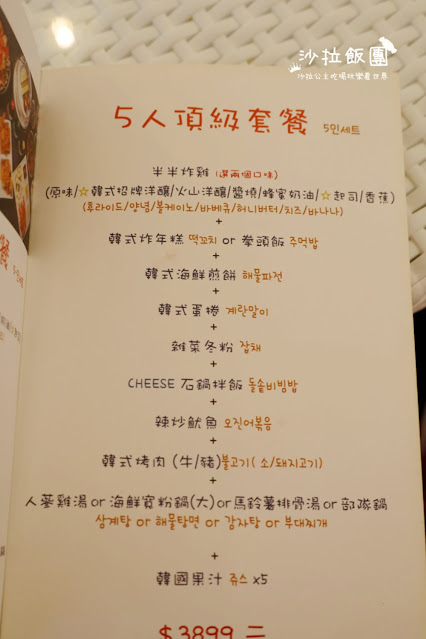 沙拉飯團
沙拉公主吃喝玩樂看世界
5人頂級套餐 5인세트
半半炸雞 (選兩個口味)
(原味/☆韓式招牌洋釀/火山洋釀/醬燒/蜂蜜奶油/☆起司/香蕉)
(후라이드/양념/볼케이노/바베큐/허니버터/치즈/바나나)
+
韓式炸年糕 떡꼬치 or 拳頭飯 주먹밥
+
韓式海鮮煎餅 해물파전
+
韓式蛋捲 계란말이
+
雜菜冬粉 잡채
+
CHEESE 石鍋拌飯 돌솥비빔밥
+
辣炒魷魚 오징어볶음
+
韓式烤肉 (牛/豬)불고기( 소/돼지고기)
+
人蔘雞湯or海鮮寬粉鍋(大)or馬鈴薯排骨湯or部隊鍋
삼계탕 or 해물탕면 or 감자탕 or 부대찌개
+
韓國果汁 쥬스 x5
$3899 元